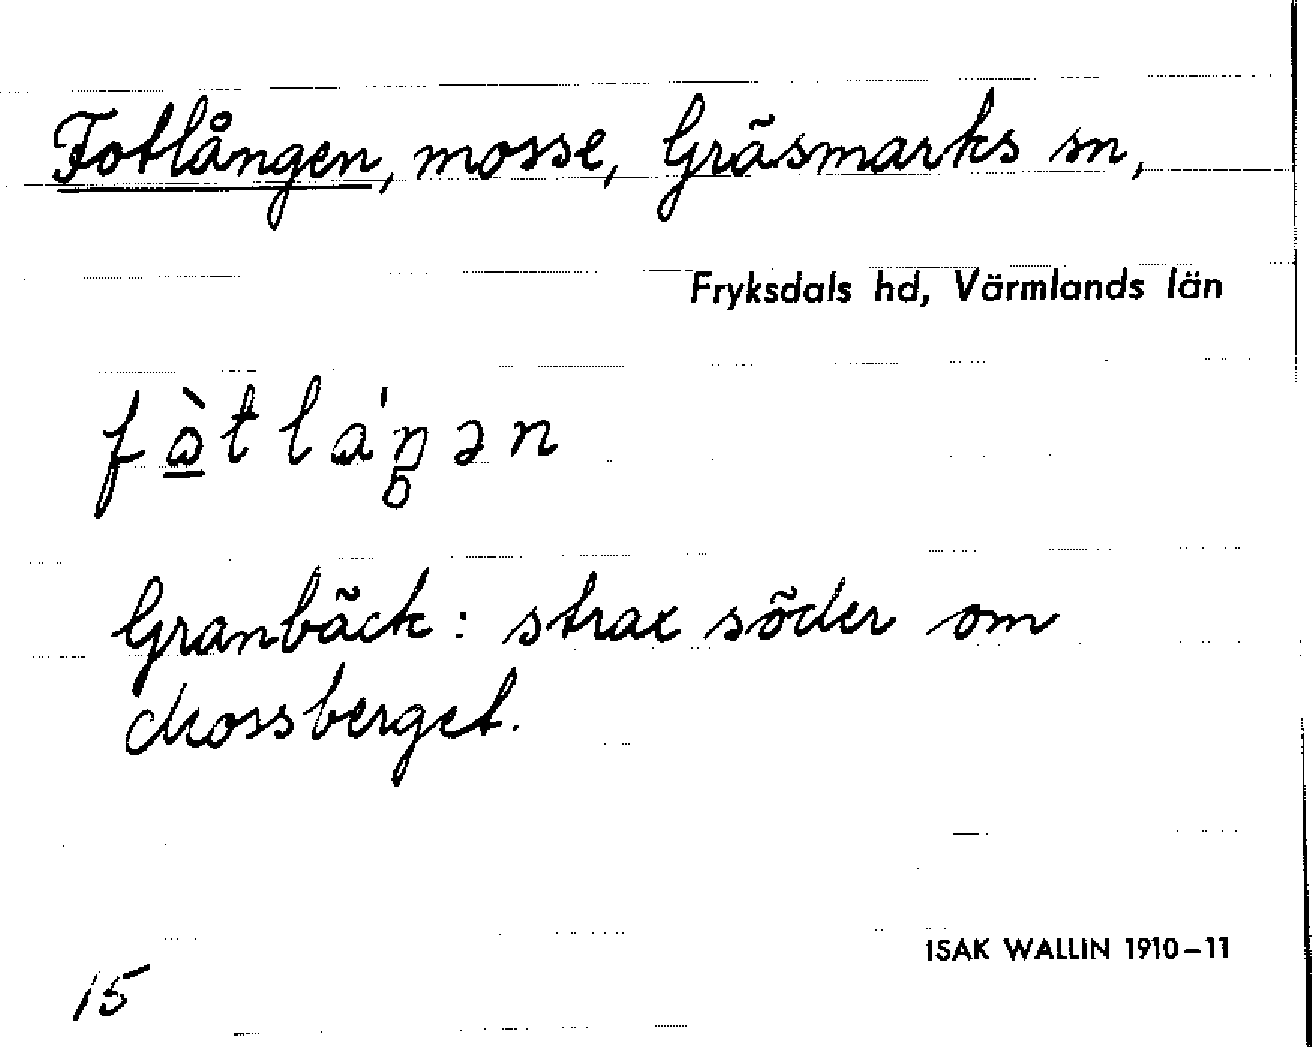 Fotlången, mosse, Gräsmarks sn,
Fryksdals hd, Värmlands län
Granbäck: strax söder om
Mossberget.
ISAK WALLIN 1910–11
15